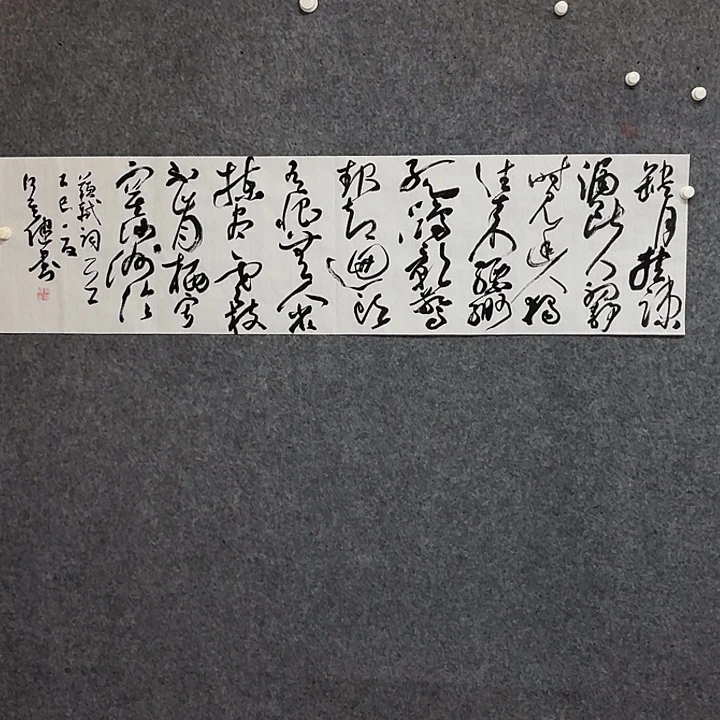 缺月挂疎
漏断人初静
时见幽人独
往来缥缈
孤鸿影惊
起却回头
有恨无人省
拣尽寒枝
不肯栖寂
寞沙洲冷
蘇軾詞
乙巳夏
书